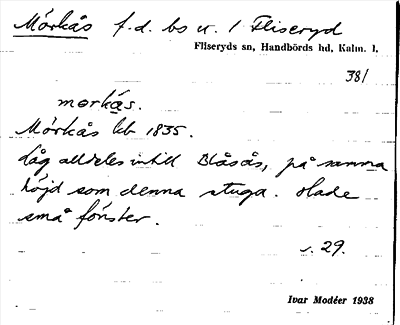 Mörkås f.d. bs u. / Fliseryd
Fliseryds sn, Handbörds hd, Kalm. l.
38/
mörkås.
Mörkås kb 1835.
Låg alldeles intill Blåsås, på samma
höjd som denna stuga. Hade
små fönster.
s. 29.
Ivar Modéer 1938